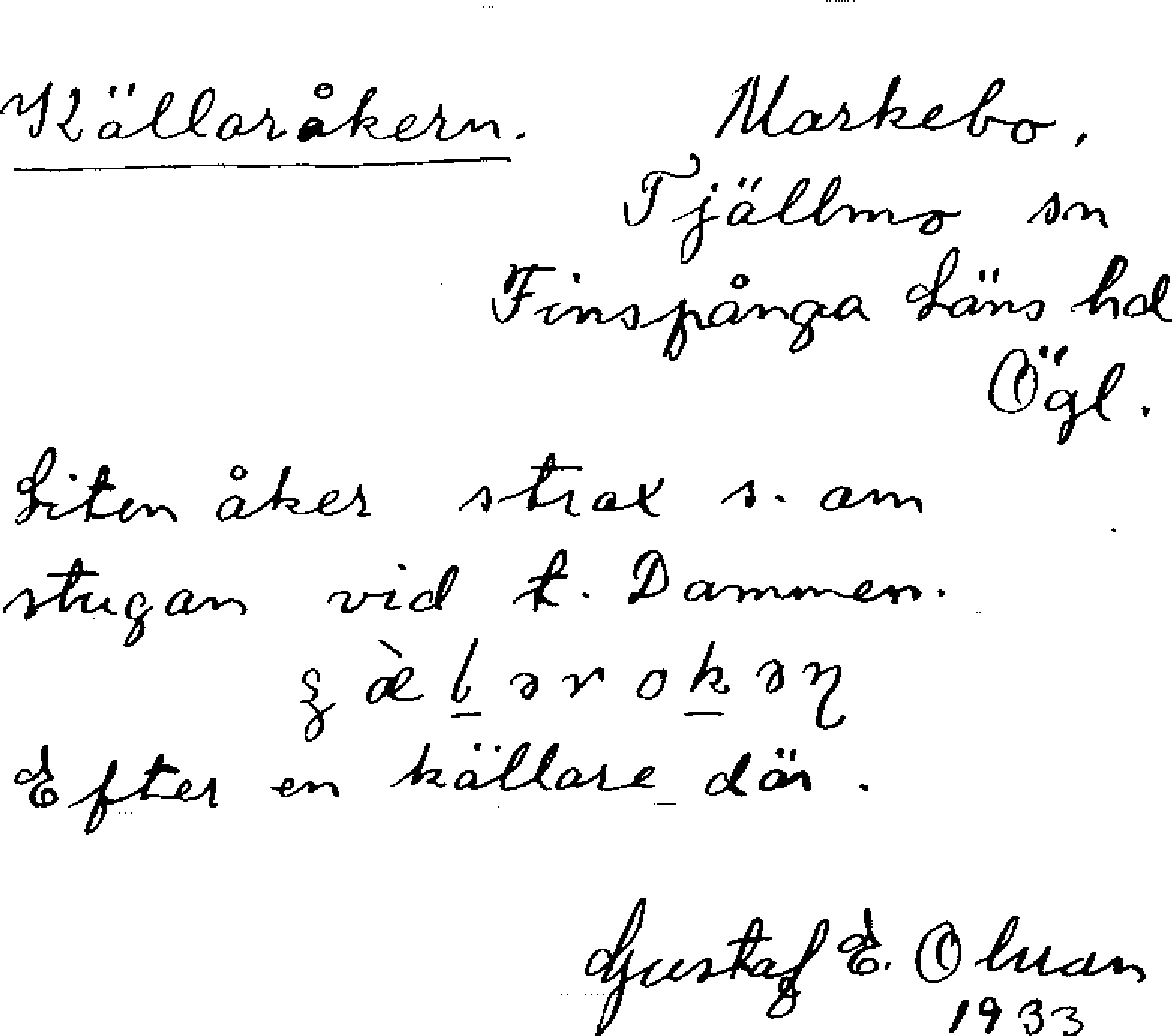 Källaråkern. Markebo,
Tjällmo sn
Finspånga Läns hd
Ögl.
Liten åker strax s. om
stugan vid t. Dammen.
Efter en källare där.
Gustaf E.
1933